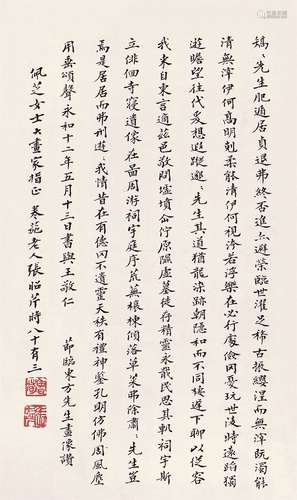 矯〻先生肥遁居貞退弗終否進亦避榮臨世濯足稀古振纓涅而無滓既濁能
清無滓伊何高明剋柔能清伊何視洿若浮樂在必行處儉罔憂跨世陵時遠蹈獨
遊瞻望往代爰想遐蹤邈〻先生其道猶龍染跡朝隱和而不同棲遲下聊以從容
我來自東言適茲邑敬問墟墳企佇原隰虛墓徒存精靈永戢民思其軌祠宇斯
立徘徊寺寢遺像在圖周游祠宇庭序荒蕪榱棟傾落草萊弗除肅〻先生豈
焉是居居而弗刑遊〻我情昔在有德罔不遺靈天秩有禮神鑒孔明仿佛周風塵
用垂頌聲永和十二年五月十三日書與王敬仁
節臨東方先生畫像讚
佩芝女士大畫家指正 老人張昭芹時八十有三